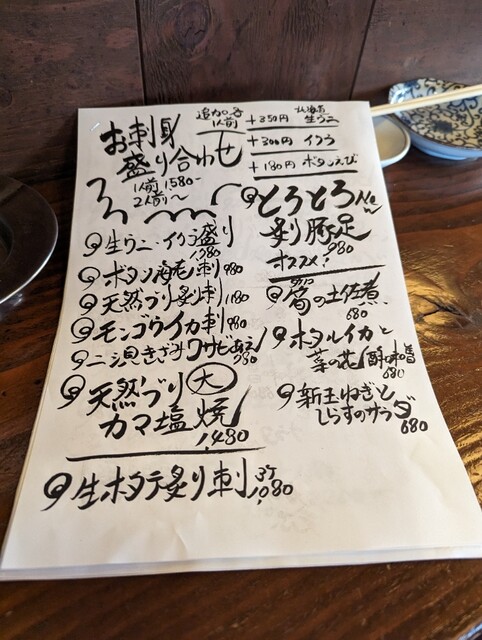 お刺身
盛り合わせ
1人前 1,580-
2人前〜
追加 各
1人前
+350円 北海道
生ウニ
+300円 イクラ
+180円 ボタンえび
生ウニ・イクラ盛り
ボタン海老刺 980
天然ぶり炙り刺 1180
モンゴウイカ刺 980
ニシ貝きざみワサビあえ
780
天然ぶり 大
カマ塩焼
1,480
生ホタテ炙り刺 3ケ
1,080
とろとろ New
炙り豚足
980
オススメ!
筍の土佐煮
680
ホタルイカと
菜の花酢味噌
680
新玉ねぎと
しらすのサラダ
680